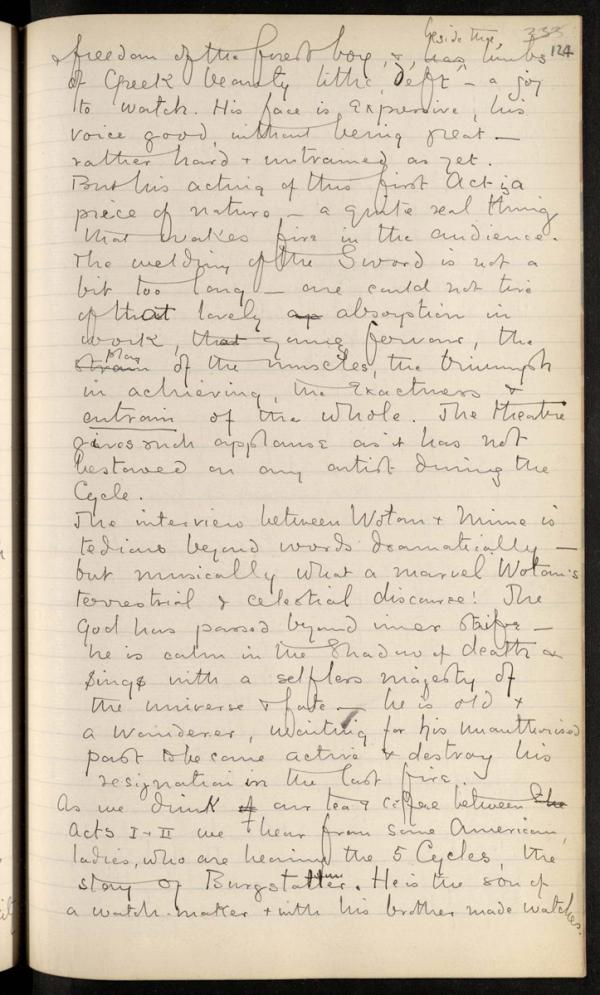 beside this, 333
& freedom of the forest boy, &, has limbs 124
of Greek beauty lithe, deft – a joy
to watch. His face is expressive, his
voice good, without being great –
rather hard & untrained as yet.
But his acting of this first Act is a
piece of nature, – a quite real thing
that wakes fire in the audience.
The welding of the Sword is not a
bit too long – one could not tire
of that lovely ap absorption in
work, that young fervour, the
play
strain of the muscles, the triumph
in achieving, the exactness &
entrain of the whole. The theatre
gives such applause as it has not
bestowed on any artist during the
Cycle.
The interview between Wotan & Mime is
tedious beyond words dramatically –
but musically what a marvel Wotan's
terrestrial & celestial discourse! The
God has passed beyond inner strife –
he is calm in the Shadow of death &
sings with a selfless majesty of
the universe & fate – he is old &
a wanderer, waiting for his unauthorised
past to become active & destroy his
resignation in the last fire.
As we drink of our tea & coffee between the
Acts I & II we hear from some American
ladies, who are hearing the 5 Cycles, the
story of Burgstaller. He is the son of
a watch-maker & with his brother made watches.